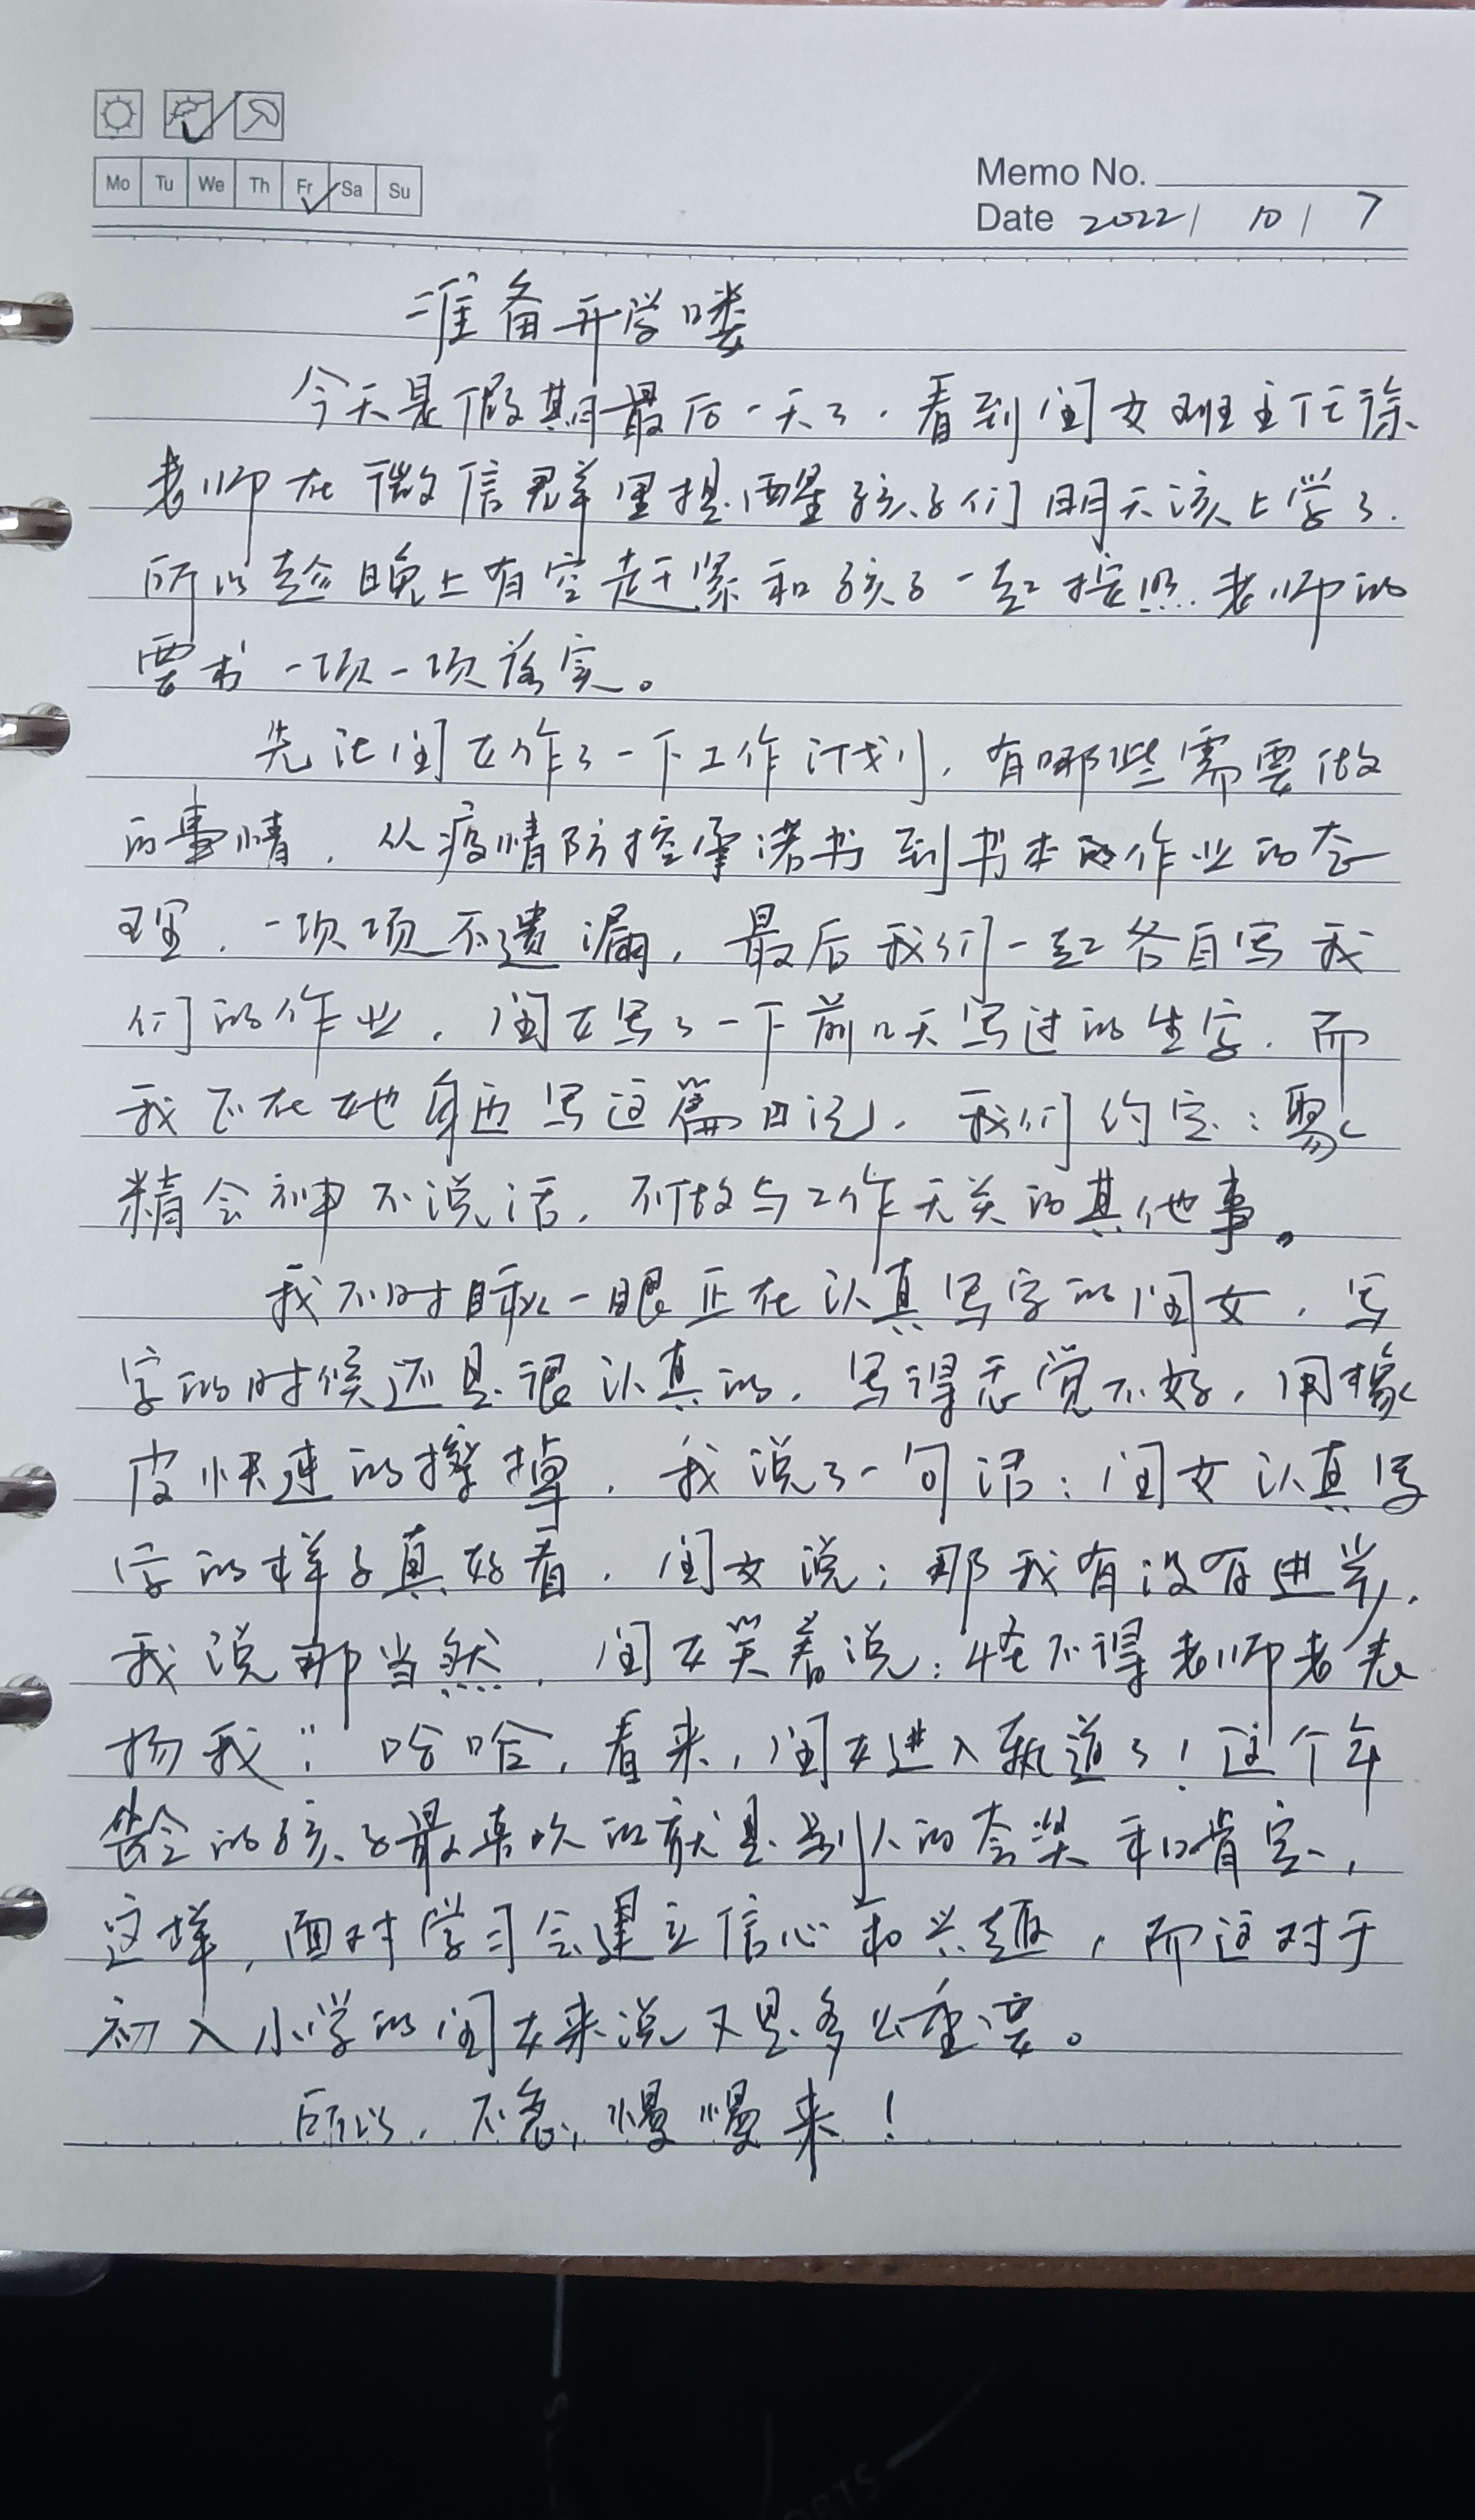 Mo Tu We Th Fr Sa Su
Memo No.
Date 2022 / 10 / 7
准备开学喽
今天是假期最后一天了，看到闺女班主任徐
老师在微信群里提醒孩子们明天该上学了.
所以趁晚上有空赶紧和孩子一起按照老师的
要求一项一项落实。
先让闺女作了一下工作计划，有哪些需要做
的事情，从疫情防控承诺书到书本的作业的整
理，一项项不遗漏，最后我们一起各自写我
们的作业，闺女写了一下前几天写过的生字，而
我正在她身边写这篇日记，我们约定：聚
精会神不说话，不做与工作无关的其他事。
我不时瞅一眼正在认真写字的闺女，写
字的时候还是很认真的，写得感觉不好，用橡
皮快速的擦掉，我说了一句话：闺女认真写
字的样子真好看，闺女说：那我有没有进步，
我说那当然，闺女笑着说：怪不得老师老表
扬我”哈哈，看来，闺女进入轨道了！这个年
龄的孩子最喜欢的就是别人的夸奖和肯定，
这样，面对学习会建立信心和兴趣，而这对于
初入小学的闺女来说又是多么重要。
所以，不急，慢慢来！